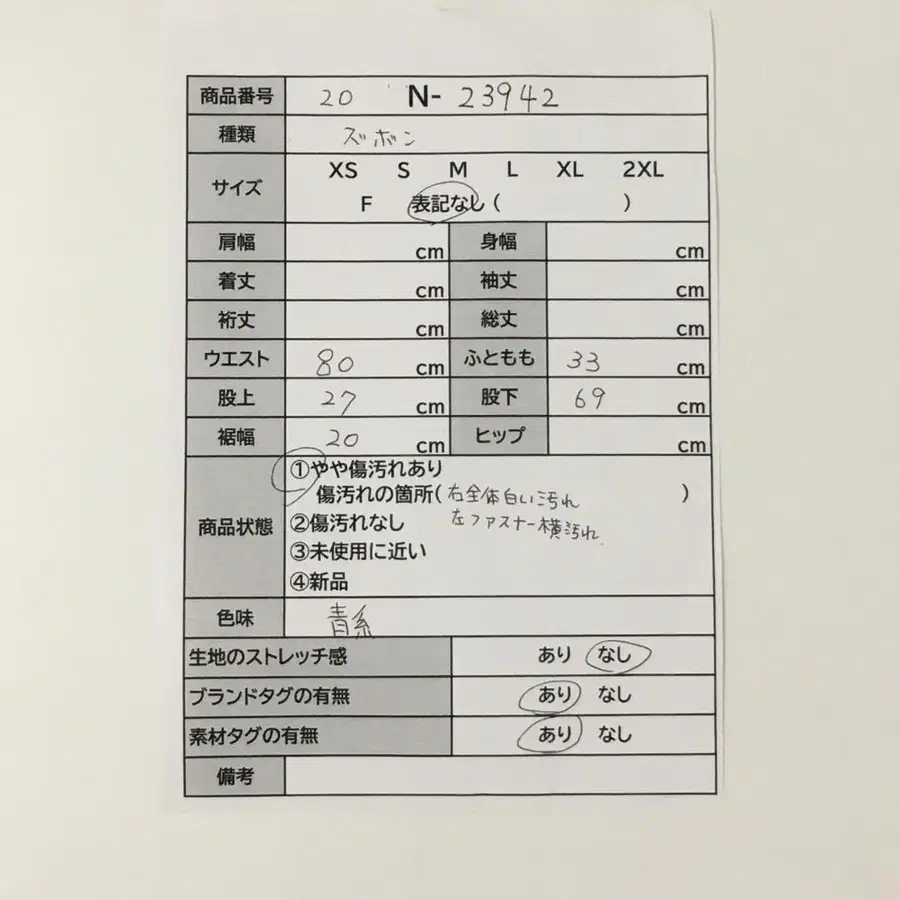 商品番号 20 N-23942
種類 ズボン
サイズ XS S M L XL 2XL
F 表記なし ( )
肩幅 cm 身幅 cm
着丈 cm 袖丈 cm
裄丈 cm 総丈 cm
ウエスト 80 cm ふともも 33 cm
股上 27 cm 股下 69 cm
裾幅 20 cm ヒップ cm
商品状態 ①やや傷汚れあり
傷汚れの箇所(右全体白い汚れ )
左ファスナー横汚れ
②傷汚れなし
③未使用に近い
④新品
色味 青系
生地のストレッチ感 あり なし
ブランドタグの有無 あり なし
素材タグの有無 あり なし
備考